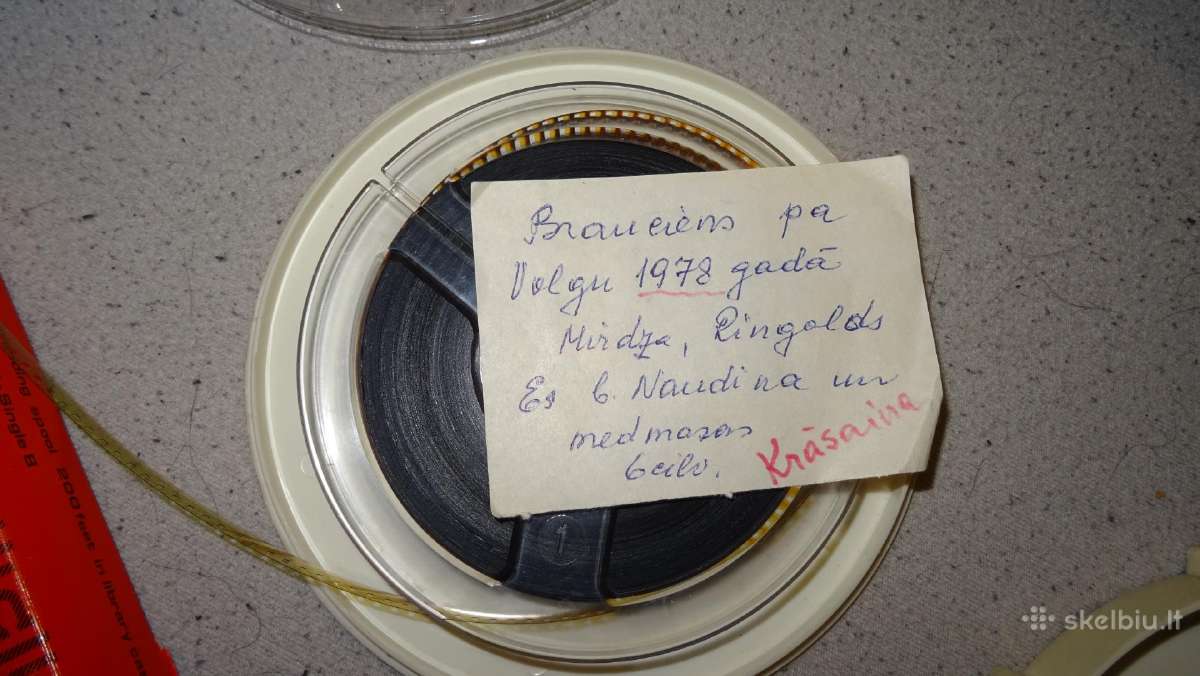 Brauciens pa
Volgu 1978 gadā
Mirdza, Ringolds
Es b. Naudiņa un
medmasas
6 cilv.
Krāsaina
1
ping spool 200 feet in library cas
Single 8
skelbiu.lt